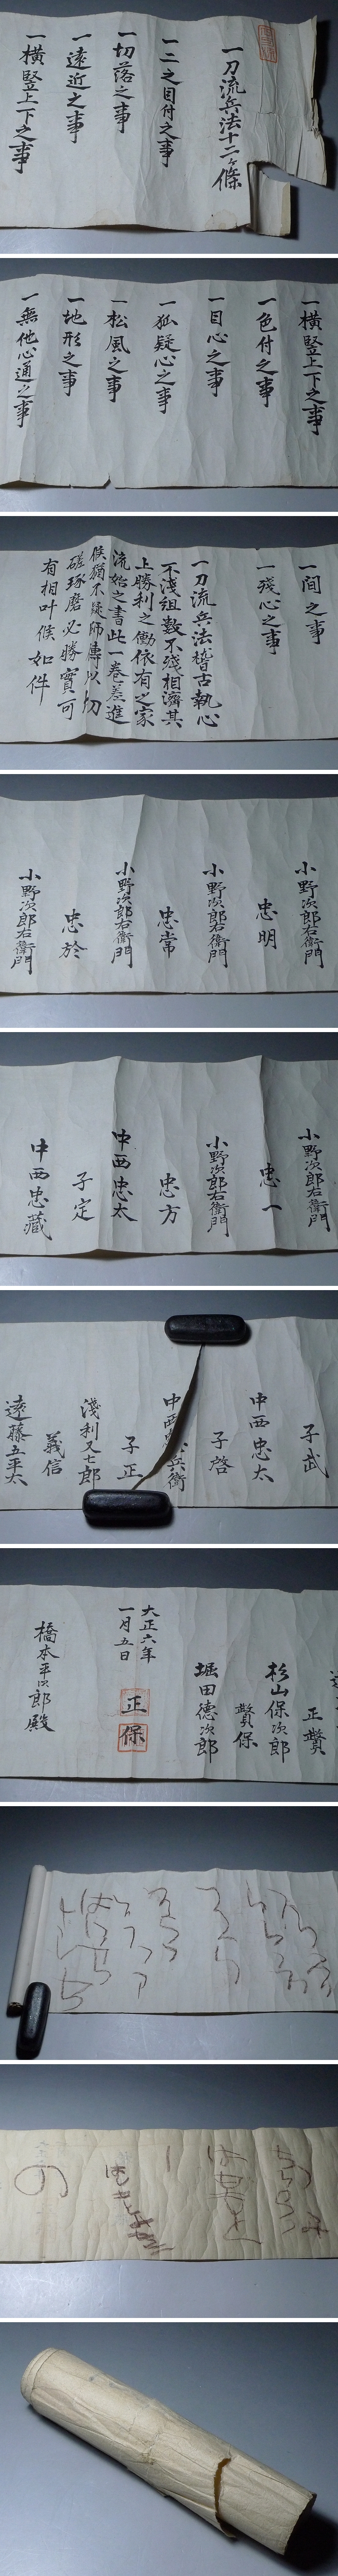 一刀流兵法十二ヶ條
一二之目付之事
一切落之事
一遠近之事
一横竪上下之事
一横竪上下之事
一色付之事
一目心之事
一狐疑心之事
一松風之事
一地形之事
一無他心通之事
一間之事
一殘心之事
一刀流兵法稽古執心
不淺組數不殘相濟其
上勝利之働依有之家
流始之書此一巻差進
候猶不疑師傳以切
磋琢磨必勝實可
有相叶候如件
小野次郎右衛門
忠明
小野次郎右衛門
忠常
小野次郎右衛門
忠於
小野次郎右衛門
忠一
小野次郎右衛門
忠方
中西忠太
子定
中西忠藏
子武
中西忠太
子啓
中西 兵衛
子正
淺利又七郎
義信
遠藤五平太
正賛
杉山保次郎
賛保
堀田德次郎
大正六年
一月五日
正
保
橋本平次郎殿
の